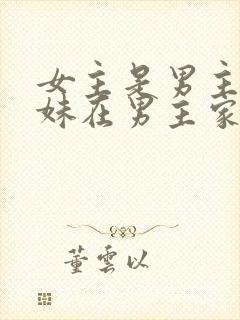 女主是男主
妹在男主家
董云以